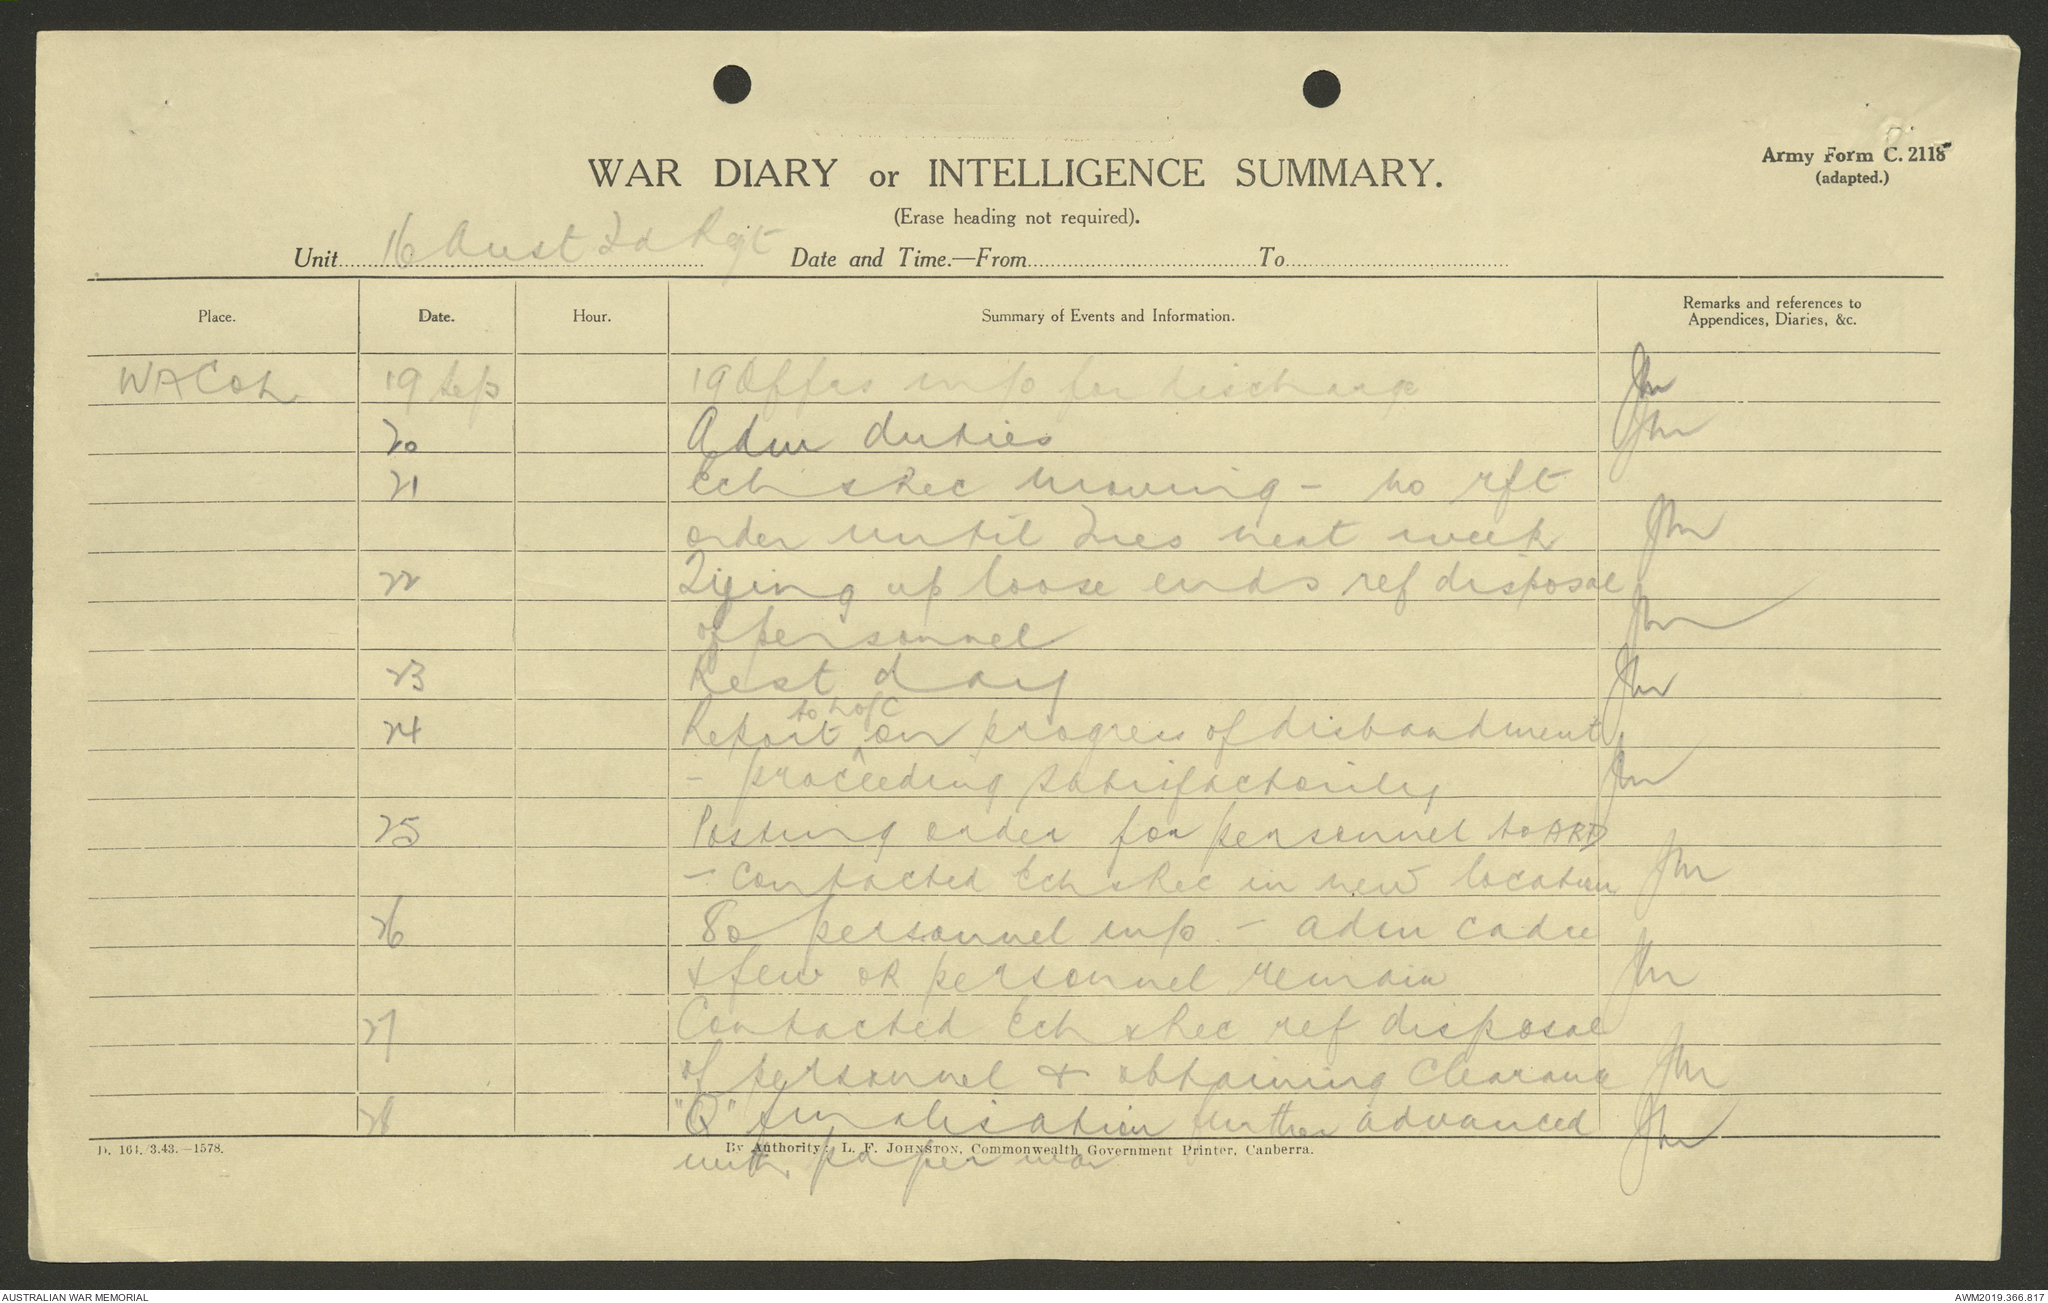 Army Form C. 2118
(adapted.)
WAR DIARY or INTELLIGENCE SUMMARY.
(Erase heading not required).
Unit 16 Aust Fd Regt Date and Time.—From To
Place. Date. Hour. Summary of Events and Information. Remarks and references to Appendices, Diaries, &c.
WACOL 19 Sep 19 Offrs m/o for discharge
20 Adm duties
21 Ech & Rec moving - no rft
order until Tues next week
22 Tying up loose ends ref disposal
of personnel
23 Rest day
to L of C
24 Report on progress of disbandment
- proceeding satisfactorily
25 Posting order for personnel to ARD
- Contacted Ech & Rec in new location
26 80 personnel m/o - adm cadre
& few OR personnel remain
27 Contacted Ech & Rec ref disposal
of personnel & obtaining Clearance
28 "Q" finalisation further advanced
with paper war
D. 164. 3.43.—1578. By Authority: L. F. Johnston, Commonwealth Government Printer, Canberra.
AUSTRALIAN WAR MEMORIAL AWM2019.366.817